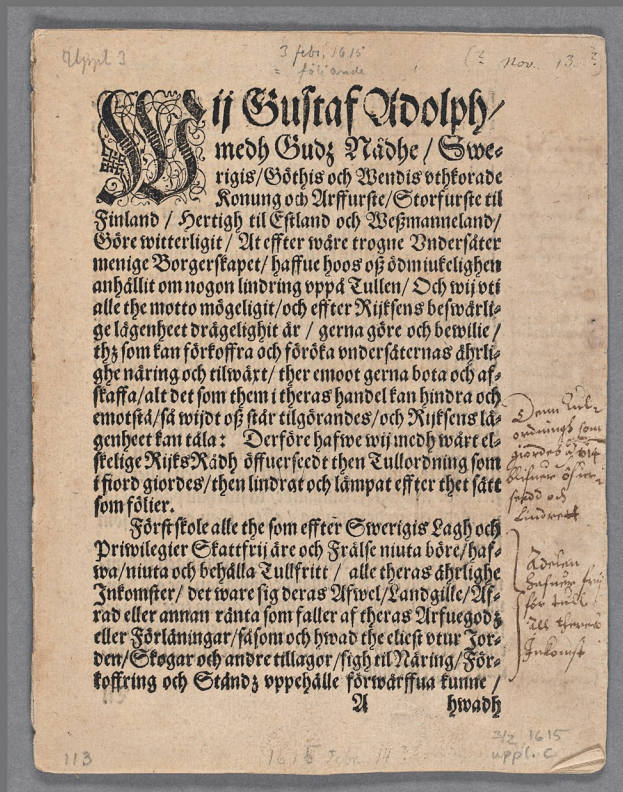 Uppl 3
3 febr. 1615
= följande
Nov. 13
Wij Gustaf Adolph/
medh Gudz Nådhe / Swe-
rigis/Göthis och Wendis vthkorade
Konung och Arffurste/Storfurste til
Finland / Hertigh til Estland och Weßmanneland/
Göre witterligit/ At effter wåre trogne Vndersåter
menige Borgerskapet/ haffue hoos oß ödmiukelighen
anhållit om nogon lindring vppå Tullen/ Och wij vti
alle the motto mögeligit/och effter Rijksens beswärli-
ge lägenheet drägelighit är / gerna göre och bewilie/
thz som kan förkoffra och föröka vndersåternas ährli-
ghe näring och tilwäxt/ ther emoot gerna bota och af-
skaffa/alt det som them i theras handel kan hindra och
emotstå/så wijdt oß står tilgörandes/och Rijksens lä-
genheet kan tåla: Derföre hafwe wij medh wårt el-
skelige RijksRådh öffuerseedt then Tullordning som
i fiord giordes/then lindrat och lämpat effter thet sätt
som fölier.
Först skole alle the som effter Swerigis Lagh och
Priwilegier Skattfrij äre och Frälse niuta böre/haf-
wa/niuta och behålla Tullfritt / alle theras ährlighe
Inkomster/ det ware sig deras Afwel/Landgille/Af-
rad eller annan ränta som faller af theras Arfuegodz
eller Förläningar/såsom och hwad the eliest vtur Jor-
den/Skogar och andre tillagor/sigh til Näring/För-
koffring och Ståndz vppehälle förwärffua kunne /
A hwadh
Denn Tull-
ordningh som
giordes
öffuer-
seedd och
Lindrett
Adelen
fri
för tull
All theres
Inkomst
3/2 1615
uppl. C
113
1615 Febr. 14